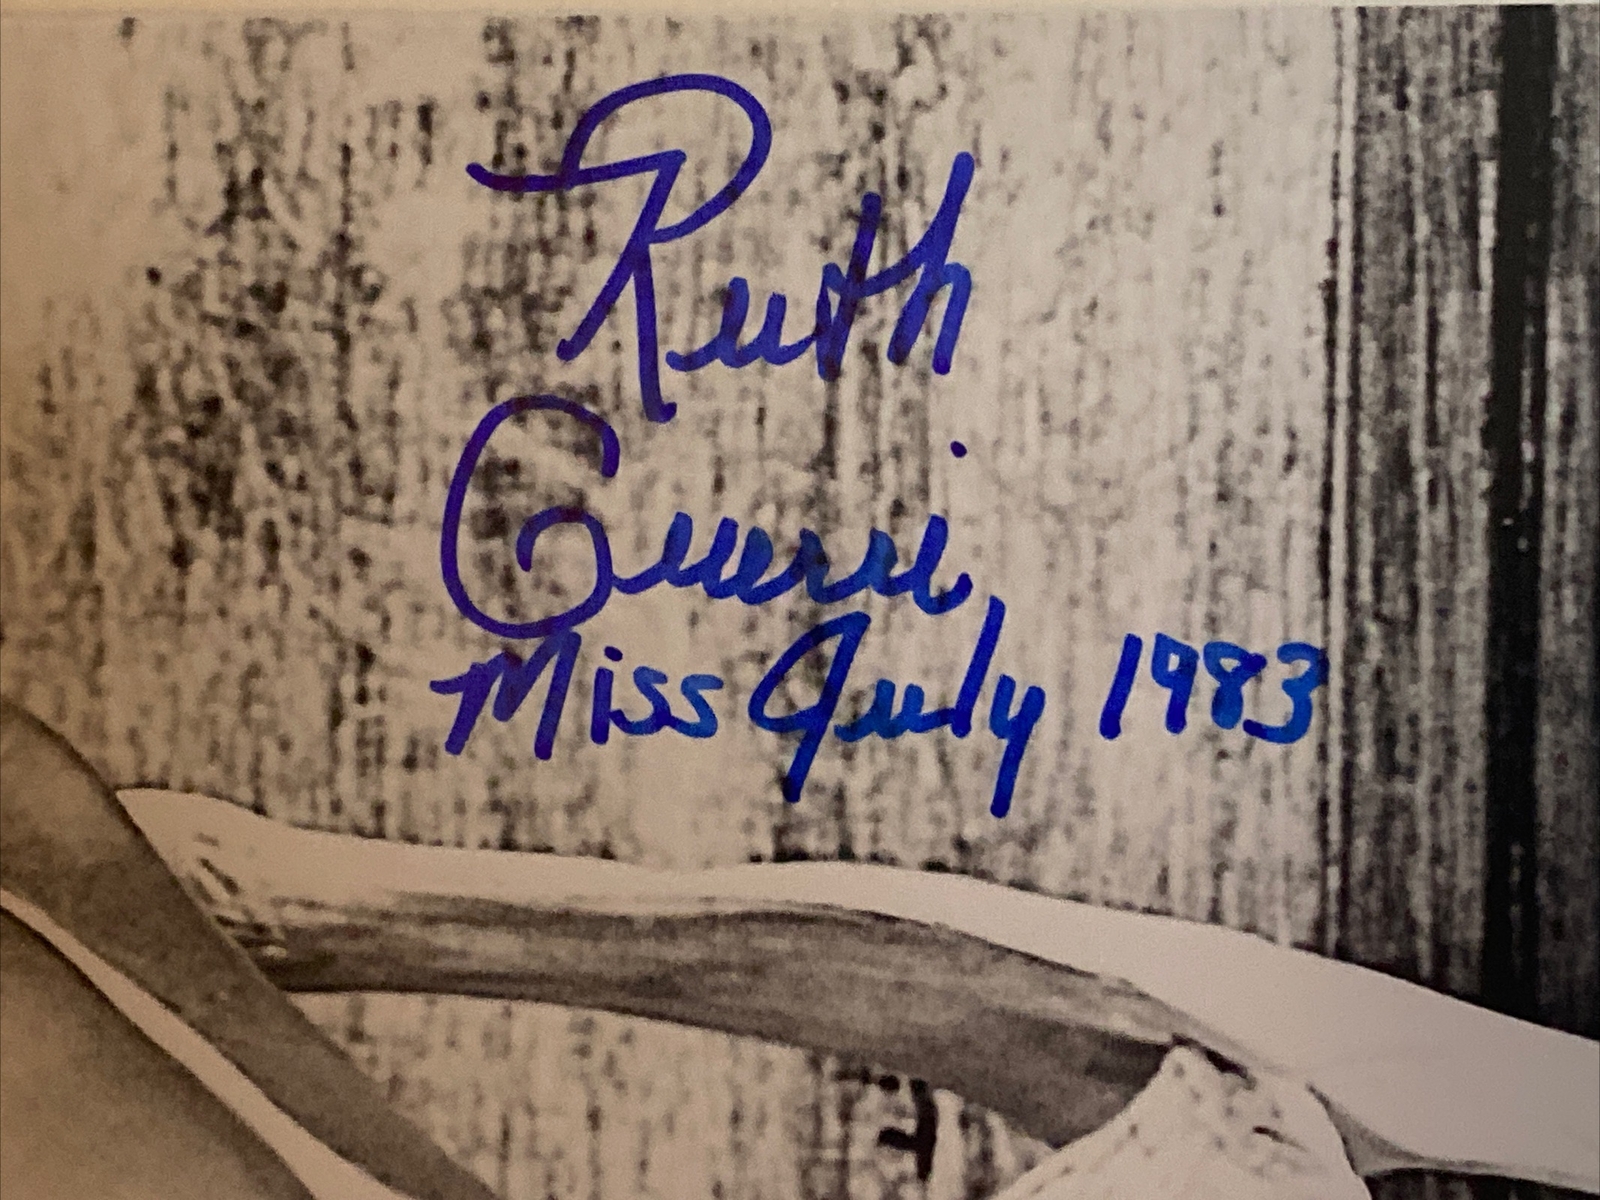 Ruth
Guerri,
Miss July 1983